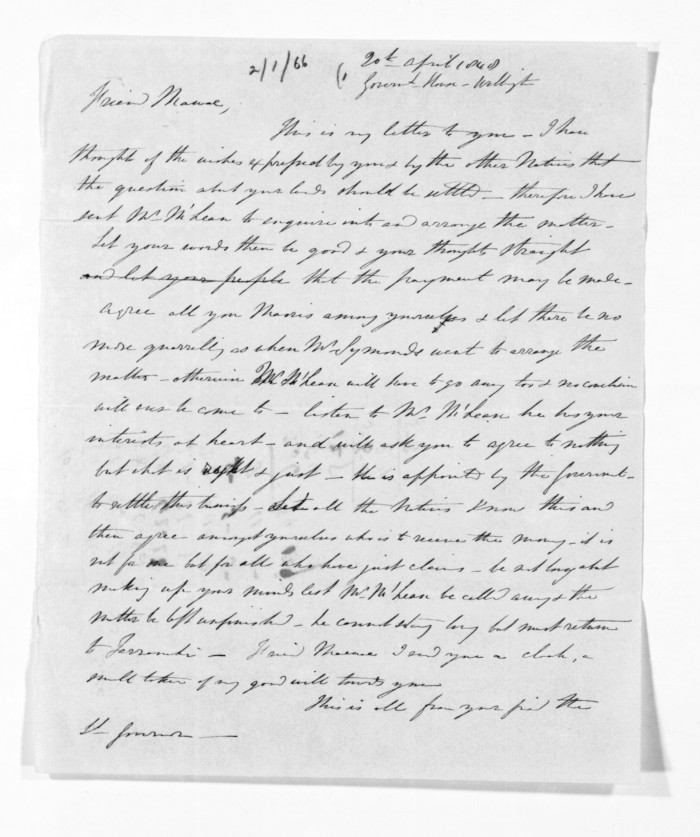 2/1/66
20th April 1848
Governt House - Wellingt
Friend Mawae,
This is my letter to you - I have
thought of the wishes expressed by you & by the other Natives that
the question abt your lands should be settled - therefore I have
sent Mr McLean to enquire into and arrange the matter -
Let your words then be good & your thoughts straight
and let your people that the payment may be made -
agree all you Maoris among yourselves & let there be no
more quarrelling as when Mr Symonds went to arrange the
matter - otherwise Mr McLean will have to go away too & no conclusion
will ever be come to - listen to Mr McLean he has your
interests at heart - and will ask you to agree to nothing
but what is right & just - He is appointed by the Governmt -
to settle this business - Let all the Natives know this and
then agree amongst yourselves who is to receive the money - it is
not for one but for all who have just claims - be not long abt
making up your minds lest Mr McLean be called away & the
matter be left unfinished - he cannot stay long but must return
to Tarranaki - Friend Mawae I send you a cloak, a
small token of my good will towards you
This is all from your friend the
Lt Governor -